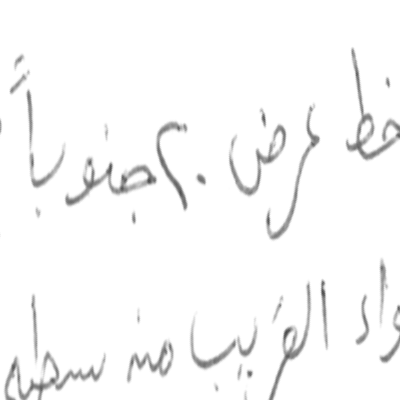 خط عرض ٢٠ جنوباً
واد القريب من سطح